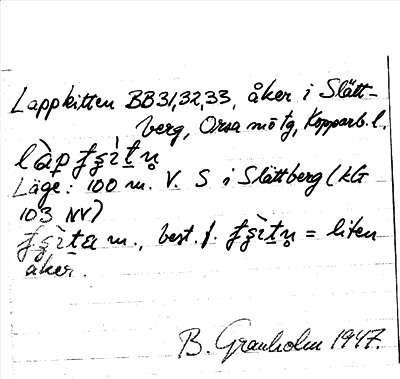 Lappkitten BB31,32,33, åker i Slätt-
berg, Orsa sn o tg, Kopparb. l.
làp̣ ŧʂìt̠ṇ̊
Läge: 100 m. V. S i Slättberg (kG
103 NV)
ŧʂìt̠a m., best. f. ŧʂìt̠ṇ̊ = liten
åker.
B. Granholm 1947.